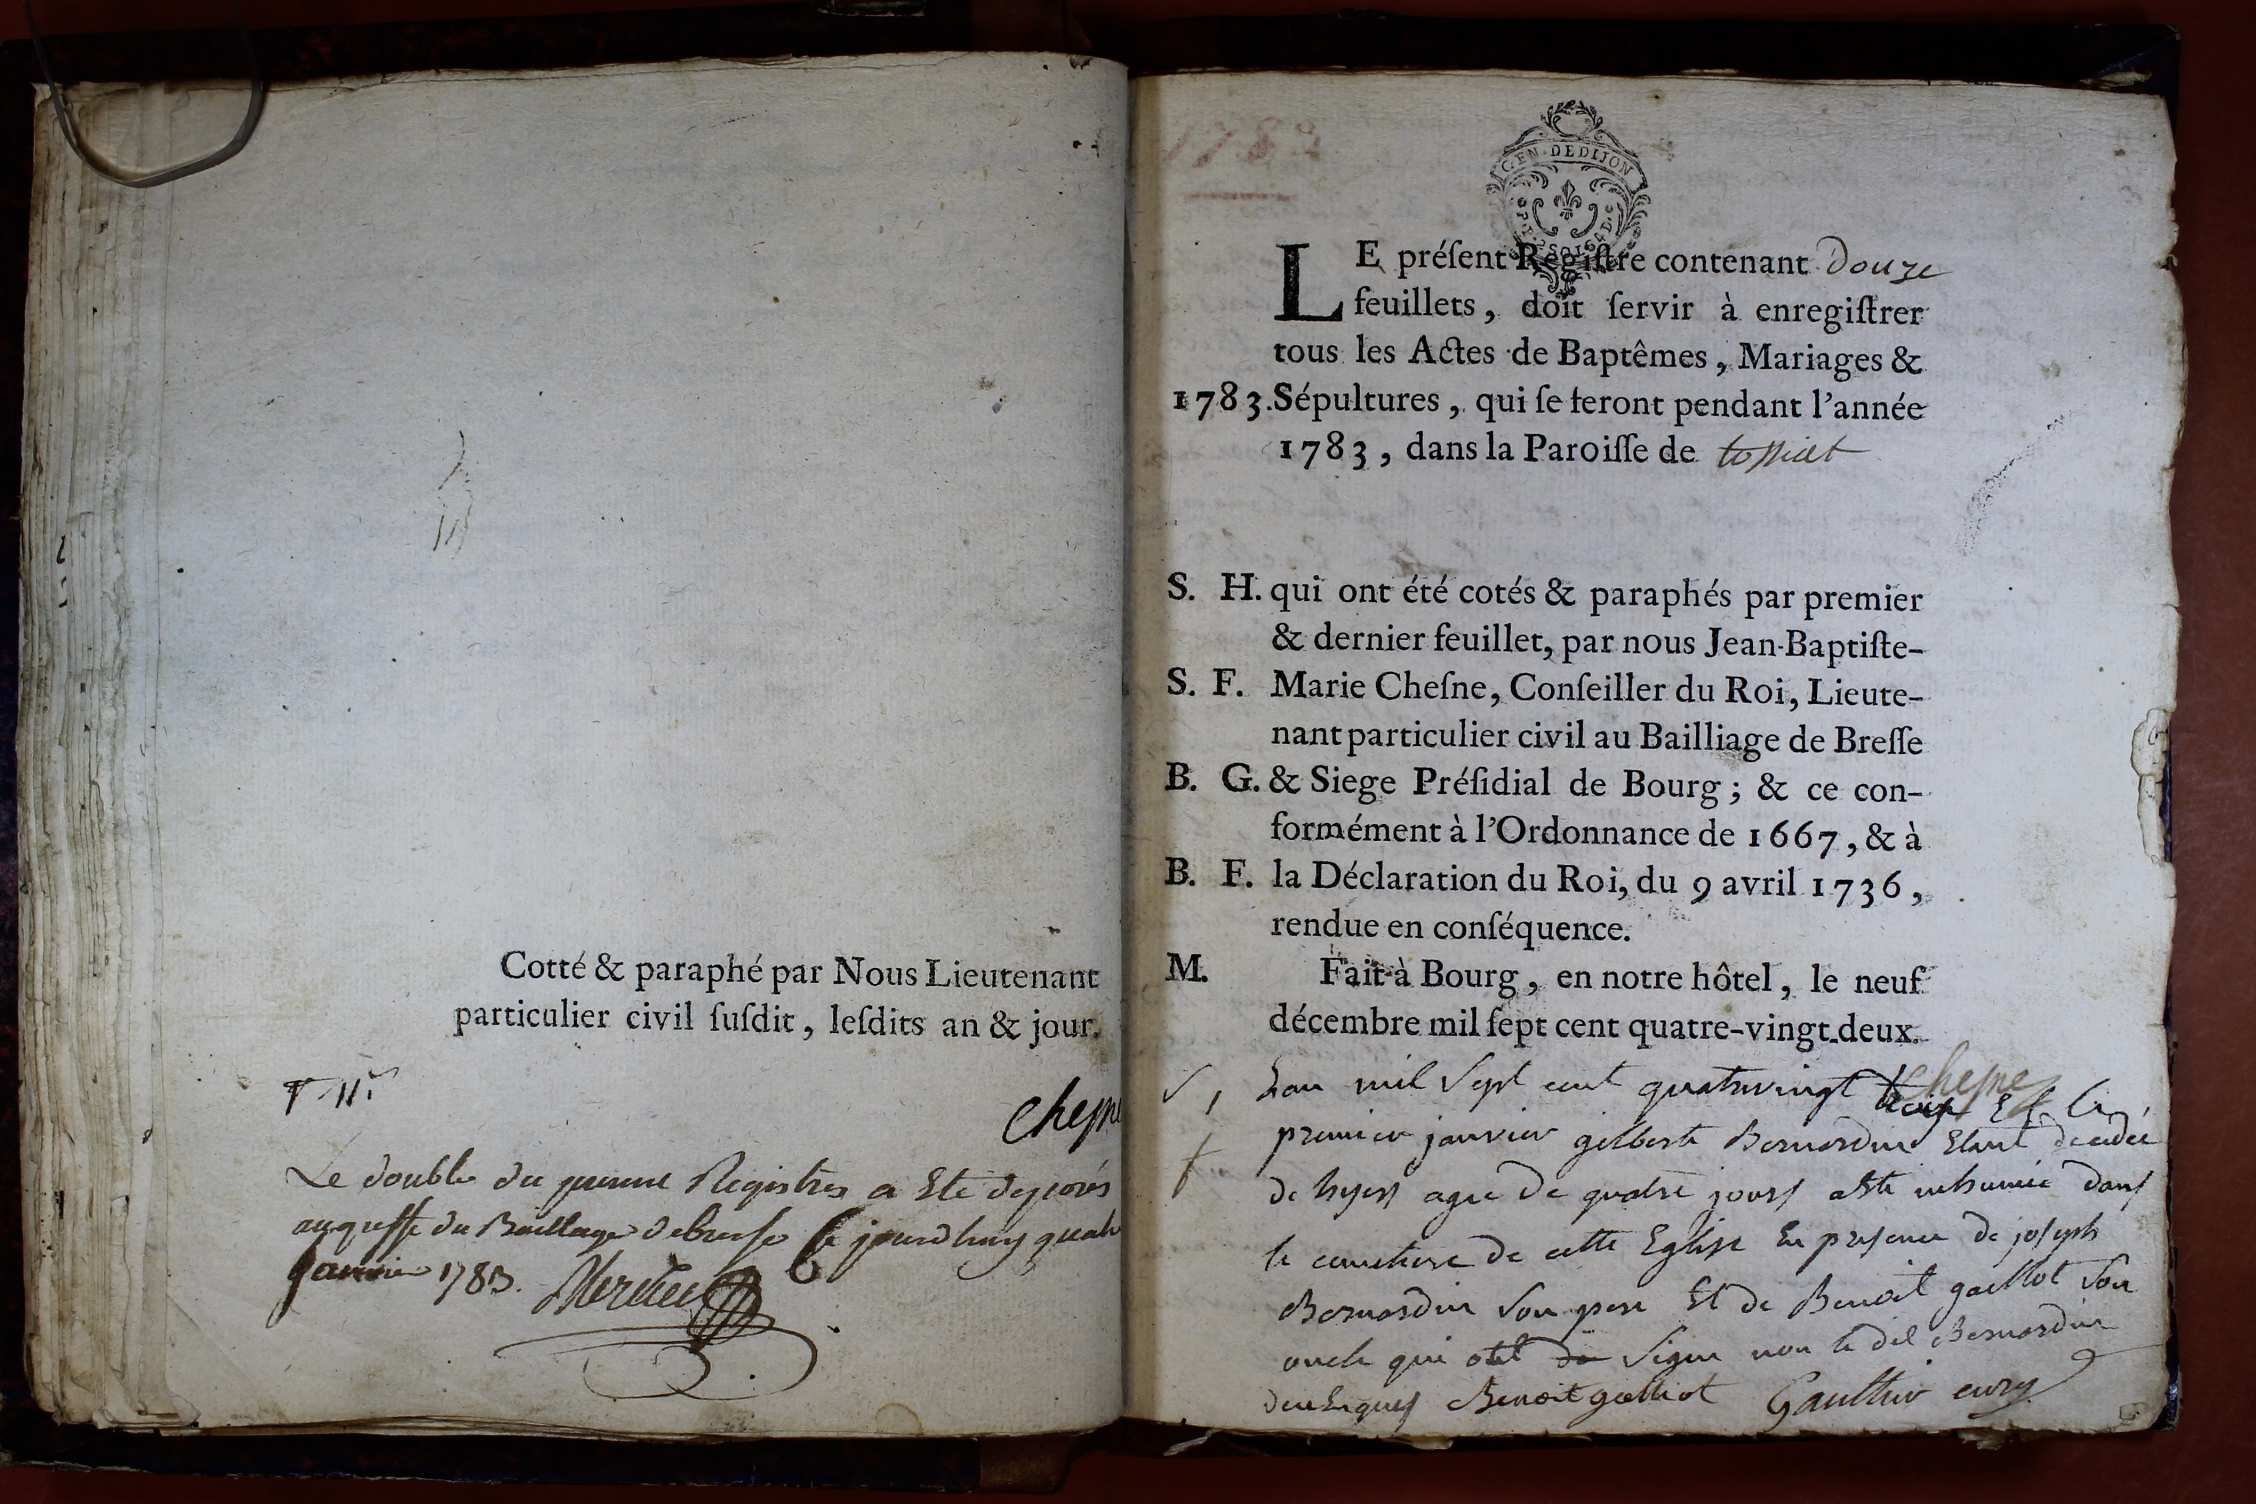 Cotté & paraphé par Nous Lieutenant
particulier civil ſuſdit, leſdits an & jour.
Cheſne
Le double du présent Registres a Eté deposés
au greffe du Bailliage de bresse ce jourdhuy quatre
janvier 1783. Mercier
GEN. DE DIJON
LE préſent Regiſtre contenant Douze
feuillets, doit ſervir à enregiſtrer
tous les Actes de Baptêmes, Mariages &
1783. Sépultures, qui ſe feront pendant l'année
1783, dans la Paroiſſe de tossiat
S. H. qui ont été cotés & paraphés par premier
& dernier feuillet, par nous Jean-Baptiſte-
S. F. Marie Cheſne, Conſeiller du Roi, Lieute-
nant particulier civil au Bailliage de Breſſe
B. G. & Siege Préſidial de Bourg; & ce con-
formément à l'Ordonnance de 1667, & à
B. F. la Déclaration du Roi, du 9 avril 1736,
rendue en conſéquence.
M. Fait à Bourg, en notre hôtel, le neuf
décembre mil ſept cent quatre-vingt-deux.
Cheſne
S, Lan mil Sept cent quatrevingt trois Et le
premier janvier gilberte Bernardin Etant decedée
f de hyers agée de quatre jours a Eté inhumée dans
le cimetiere de cette Eglise En presence de joseph
Bernardin Son pere Et de Benoit gaillot Son
oncle qui ont Signe non le dit Bernardin
de ce Enquis Benoit galliot Gaulthier curé